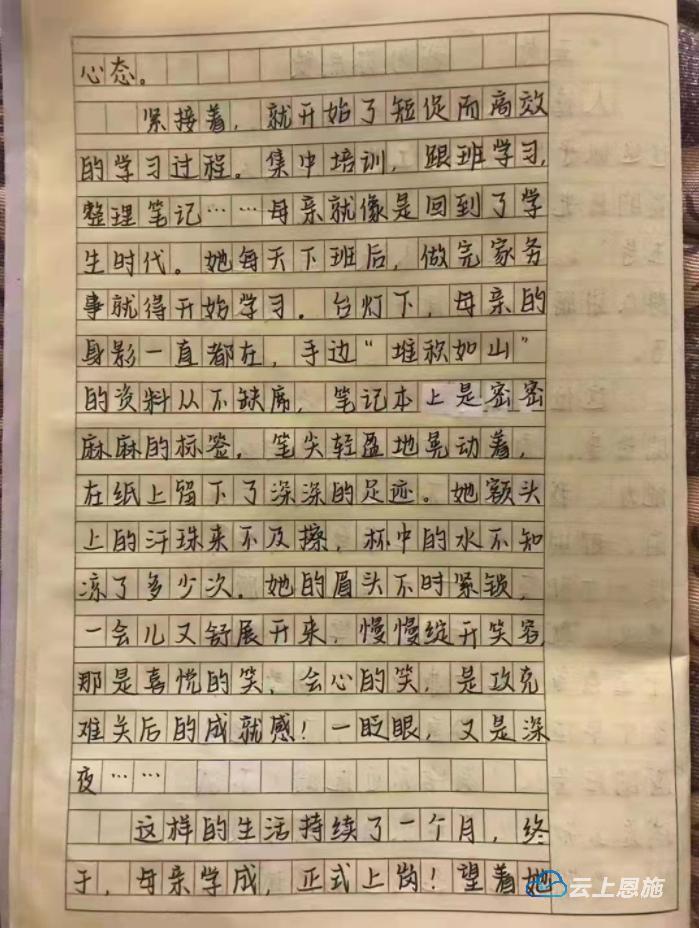 心态。
紧接着，就开始了短促而高效
的学习过程。集中培训，跟班学习，
整理笔记……母亲就像是回到了学
生时代。她每天下班后，做完家务
事就得开始学习。台灯下，母亲的
身影一直都在，手边“堆积如山”
的资料从不缺席，笔记本上是密密
麻麻的标签，笔尖轻盈地晃动着，
在纸上留下了深深的足迹。她额头
上的汗珠来不及擦，杯中的水不知
凉了多少次。她的眉头不时紧锁，
一会儿又舒展开来，慢慢绽开笑容，
那是喜悦的笑，会心的笑，是攻克
难关后的成就感！一眨眼，又是深
夜……
这样的生活持续了一个月，终
于，母亲学成，正式上岗！望着她
云上恩施